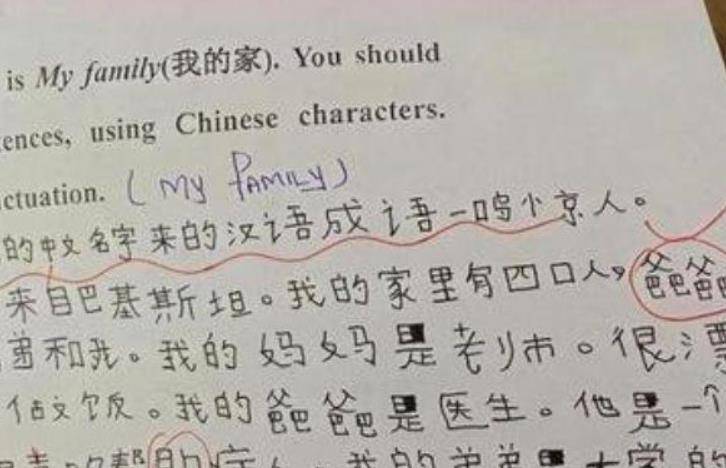 is My family(我的家). You should
ences, using Chinese characters.
ctuation. (My FAMILY)
的中文名字来的汉语成语一鸣小京人。
来自巴基斯坦。我的家里有四口人,爸爸
弟和我。我的妈妈是老师。很漂
做饭。我的爸爸是医生。他是一个
的 我的弟弟是大学的